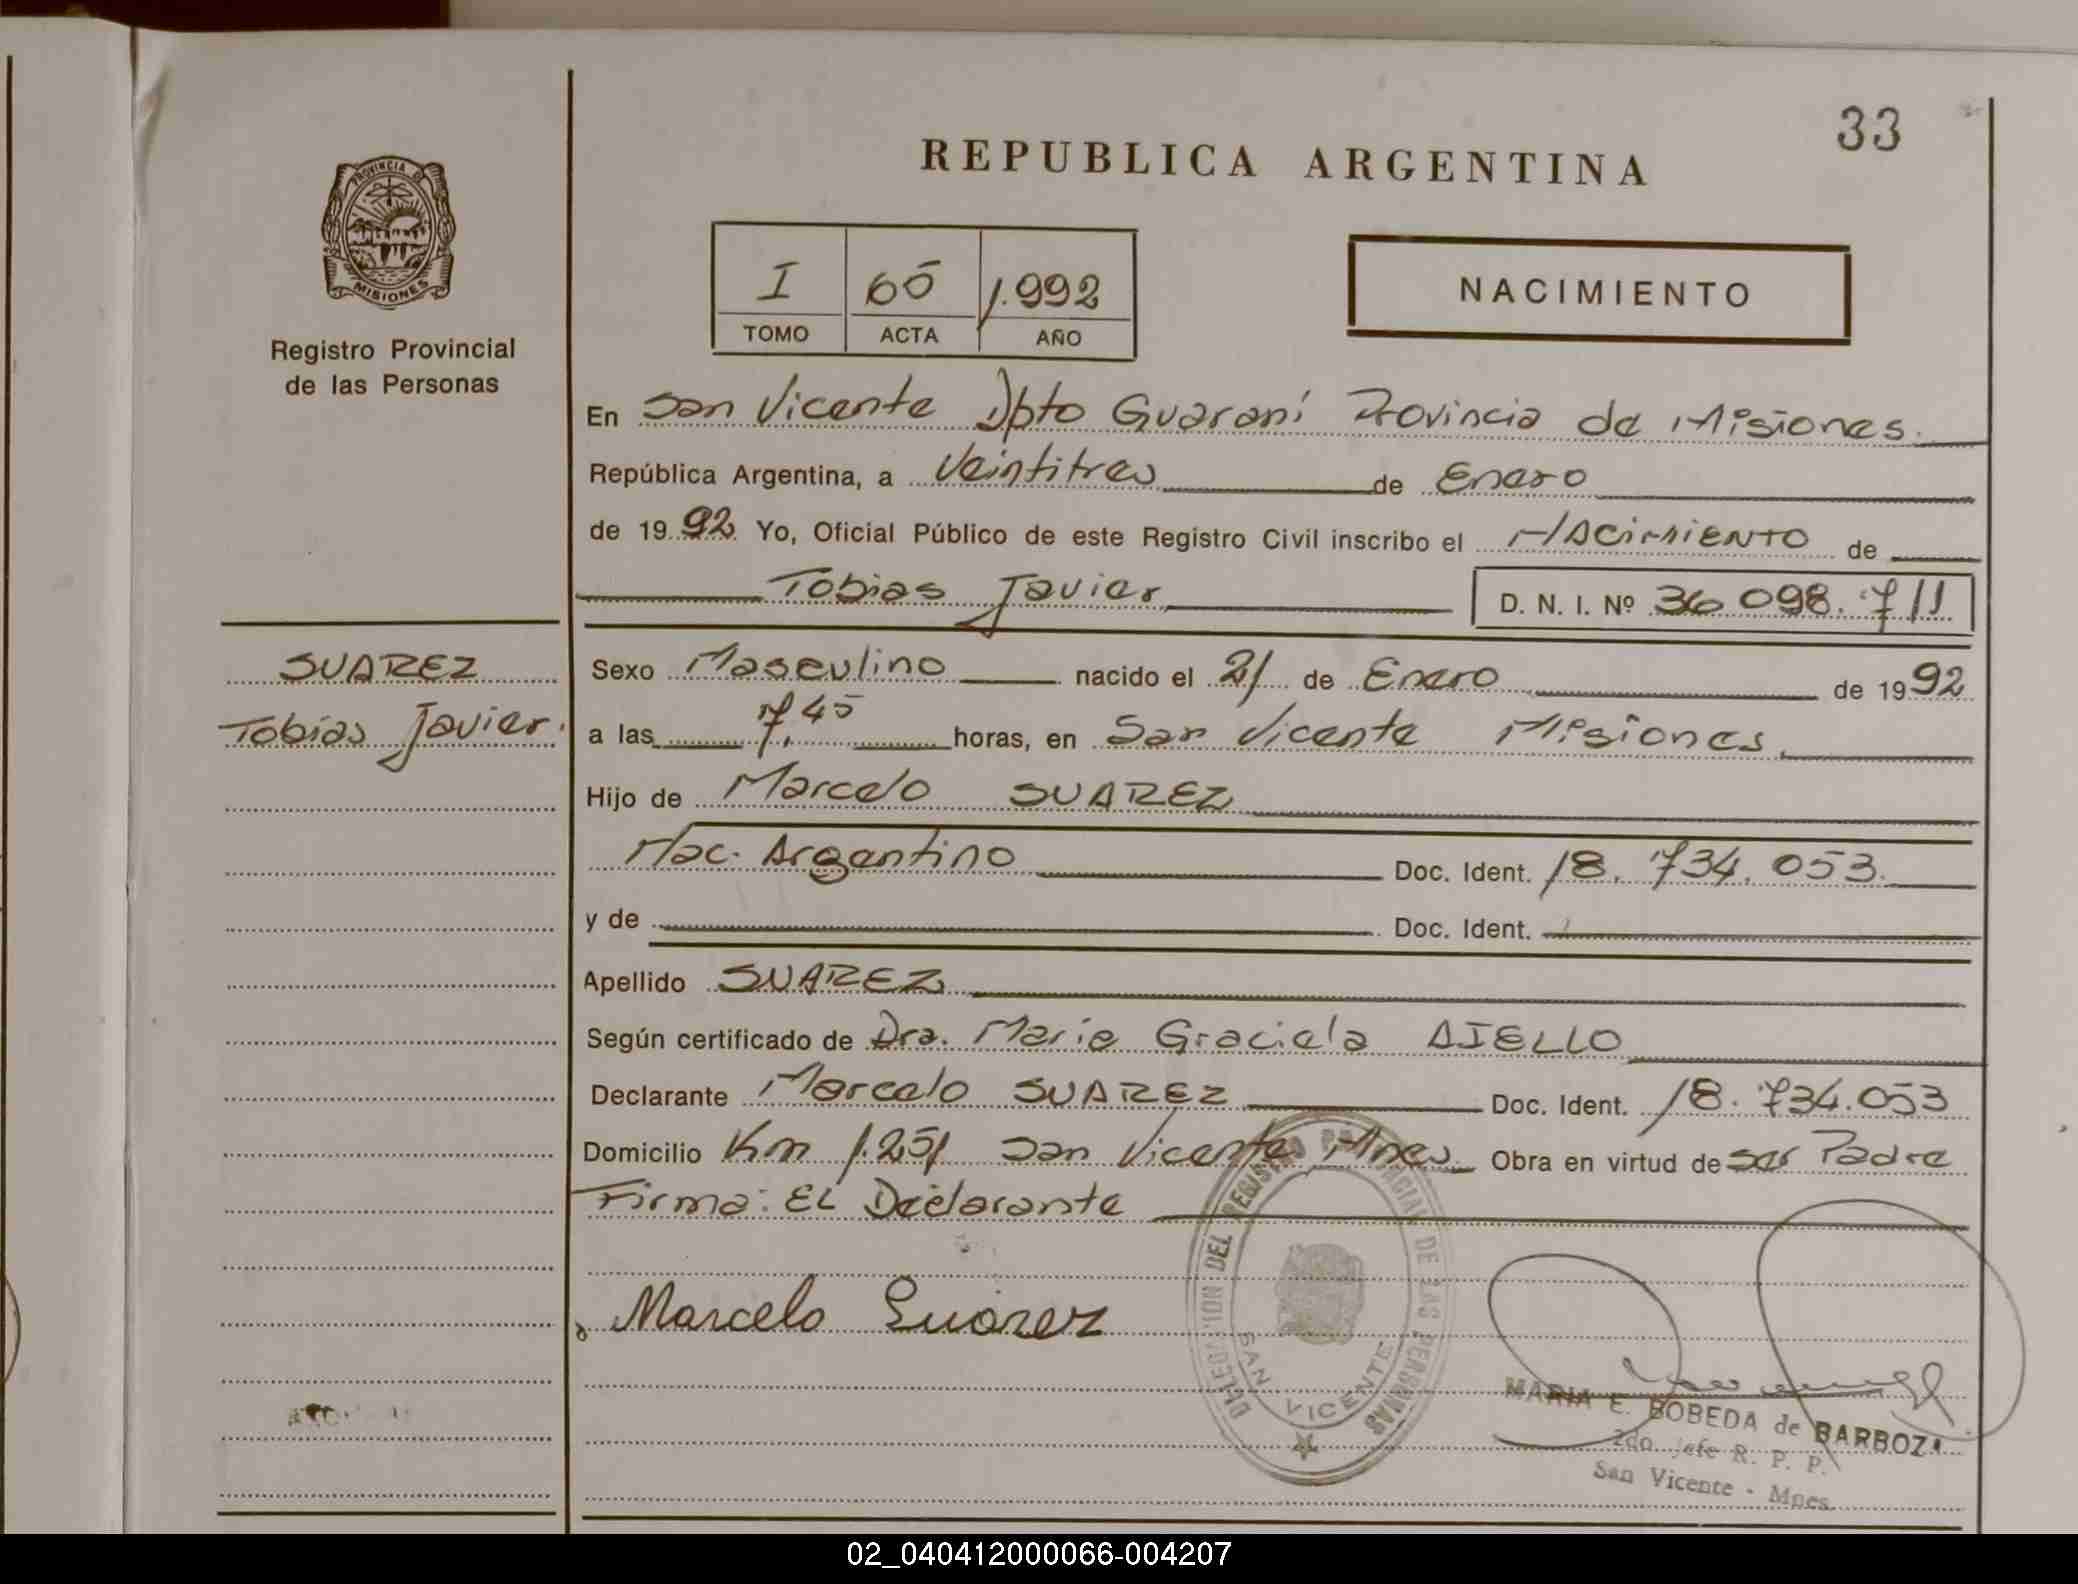 33
REPUBLICA ARGENTINA
PROVINCIA D
MISIONES
Registro Provincial
de las Personas
I 65 1.992
TOMO ACTA AÑO
NACIMIENTO
En San Vicente Dpto Guaraní Provincia de Misiones.
República Argentina, a Veintitres de Enero
de 1992 Yo, Oficial Público de este Registro Civil inscribo el NACIMIENTO de
Tobias Javier D. N. I. Nº 36 098.711
SUAREZ
Tobias Javier.
Sexo Masculino nacido el 21 de Enero de 1992
a las 7,45 horas, en San Vicente Misiones
Hijo de Marcelo SUAREZ
Nac. Argentino Doc. Ident. 18.734.053
y de Doc. Ident.
Apellido SUAREZ
Según certificado de Dra. Marie Graciela AIELLO
Declarante Marcelo SUAREZ Doc. Ident. 18.734.053
Domicilio Km 1.251 San Vicente Mnes Obra en virtud de ser Padre
Firma: EL Declarante
Marcelo Suárez
DELEGACION DEL REGISTRO PROVINCIAL DE LAS PERSONAS
SAN VICENTE
MARIA E. BOBEDA de BARBOZA
2do. Jefe R. P. P.
San Vicente - Mnes.
02_040412000066-004207